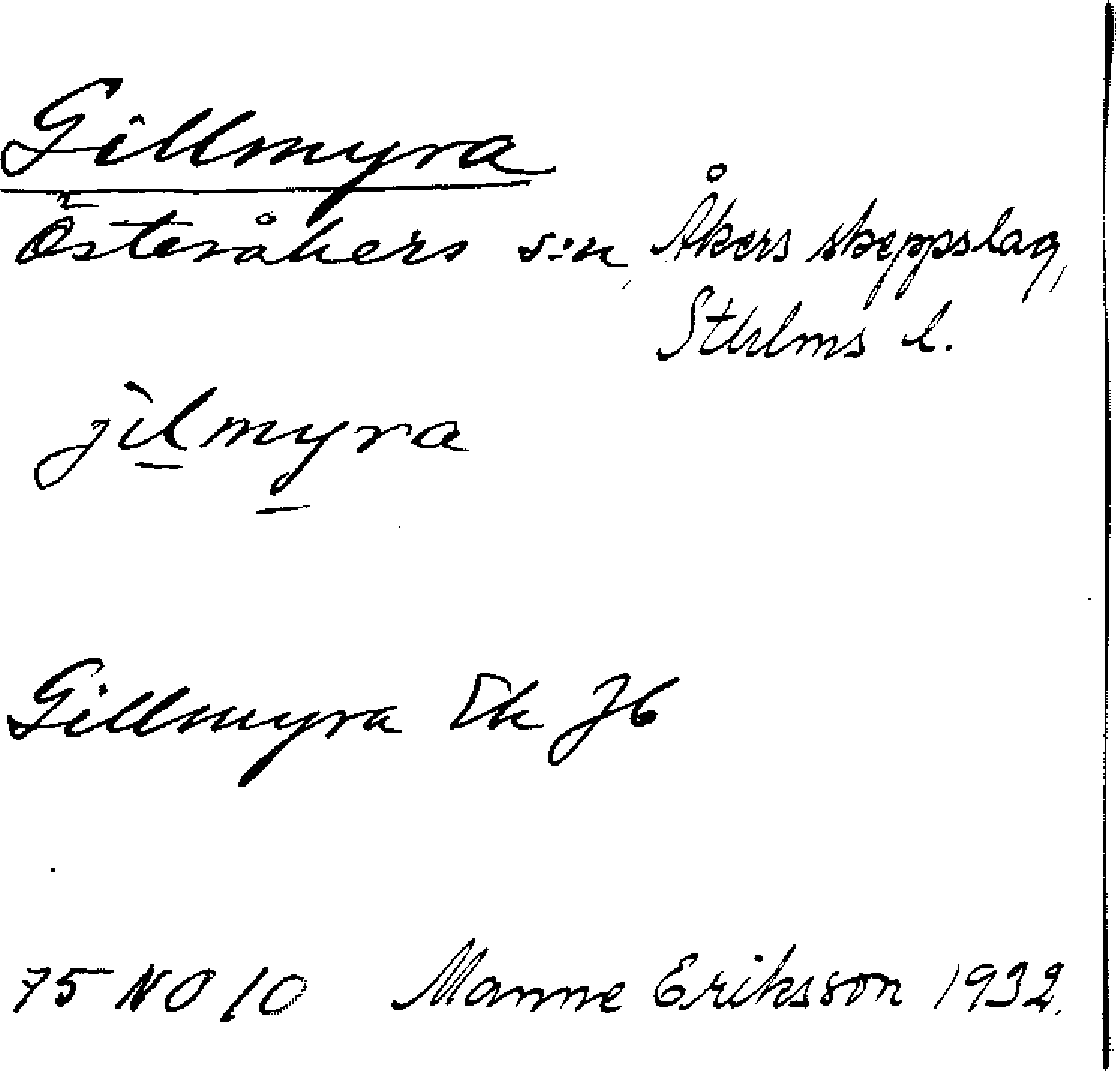 Gillmyra
Österåkers s:n, Åkers skeppslag,
Sthlms l.
jìlmyra
Gillmyra Ek Jb
75 NO 10 Manne Eriksson 1932.